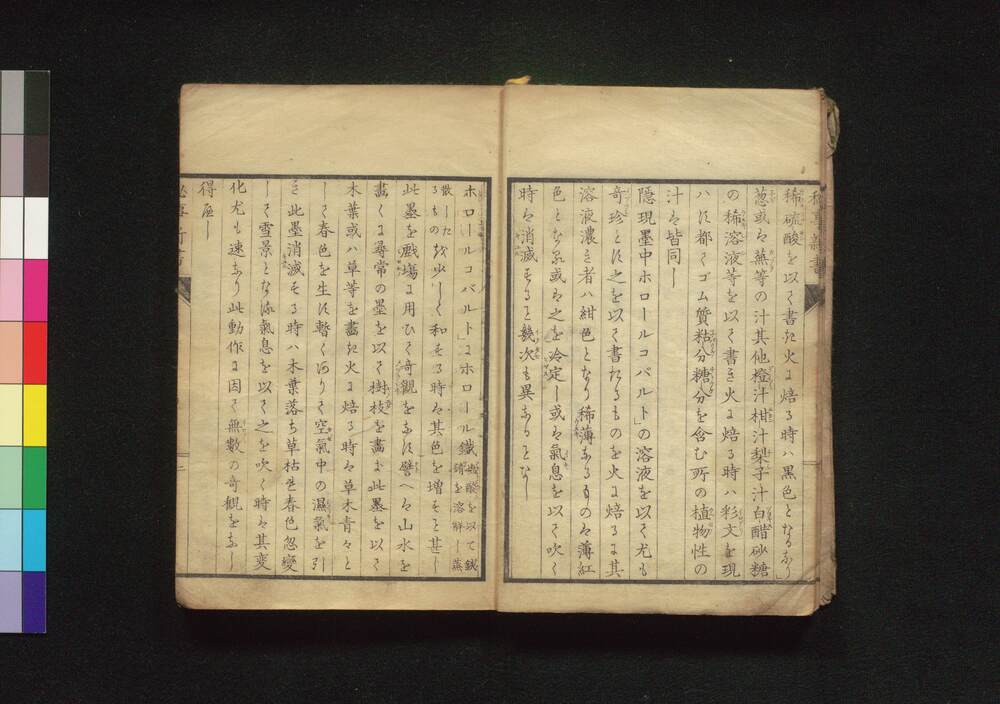 稀硫酸を以て書き火に焙る時ハ黒色となるなり」
葱或は蒜等の汁其他橙汁柑汁梨子汁白醋砂糖
の稀溶液等を以て書き火に焙る時ハ彩文を現
ハす都てゴム質粘分糖分を含む所の植物性の
汁は皆同し
隠現墨中ホロールコバルト」の溶液を以て尤も
奇珍とす之を以て書たるものを火に焙るに其
溶液濃き者ハ紺色となり稀薄なるものは薄紅
色となる或は之を冷定し或は氣息を以て吹く
時は消滅すること幾次も異なることなし
ホロールコバルト」にホロール鐵
散したるもの少しく和する時は其色を増すこと甚し
此墨を戲塲に用ひて奇觀をなす譬へは山水を
畫くに尋常の墨を以て樹枝を畫き此墨を以て
木葉或ハ草等を畫き火に焙る時は草木青々と
して春色を生す暫くありて空氣中の濕氣を引
き此墨消滅する時ハ木葉落ち草枯き春色忽變
して雪景となる氣息を以て之を吹く時は其変
化尤も速なり此動作に因て無數の奇觀をなし
得へし